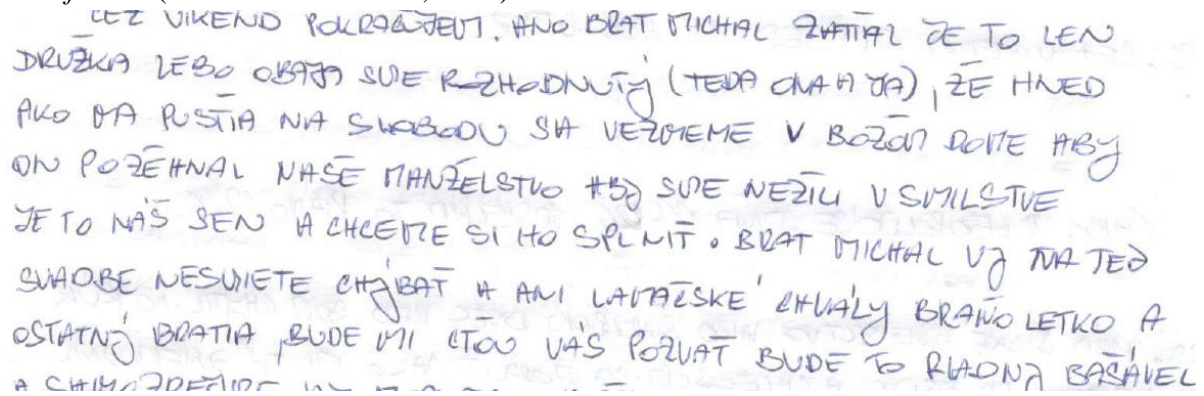 CEZ VIKEND POKRAČUJEM. ANO BRAT MICHAL ZATIAL JE TO LEN
DRUŽKA LEBO OBAJA SME ROZHODNUTÝ (TEDA ONA A JA), ŽE HNED
AKO MA PUSTIA NA SLOBODU SA VEZMEME V BOŽOM DOME ABY
ON POŽEHNAL NAŠE MANŽELSTVO ABY SME NEŽILI V SMILSTVE
JE TO NÁŠ SEN A CHCEME SI HO SPLNIŤ. BRAT MICHAL VY NA TEJ
SVADBE NESMIETE CHÝBAŤ A ANI LAVAČSKÉ CHVÁLY BRAŇO LETKO A
OSTATNÝ BRATIA, BUDE MI CŤOU VÁS POZVAŤ BUDE TO RIADNY BAŠAVEL
A